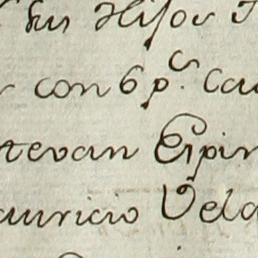 sus Hijos
con 6 p.s
tevan Espin
auricio Vela